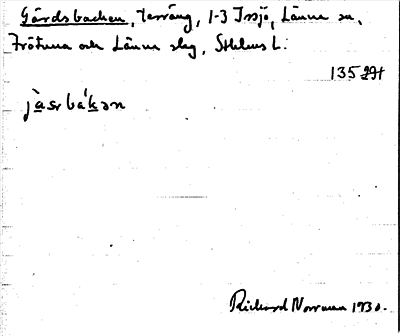 Gärdsbacken, terräng, 1-3 Issjö, Länna sn,
Frötuna och Länna slg, Sthlms l.
135
jasrbákan
Richard Norrman 1930.